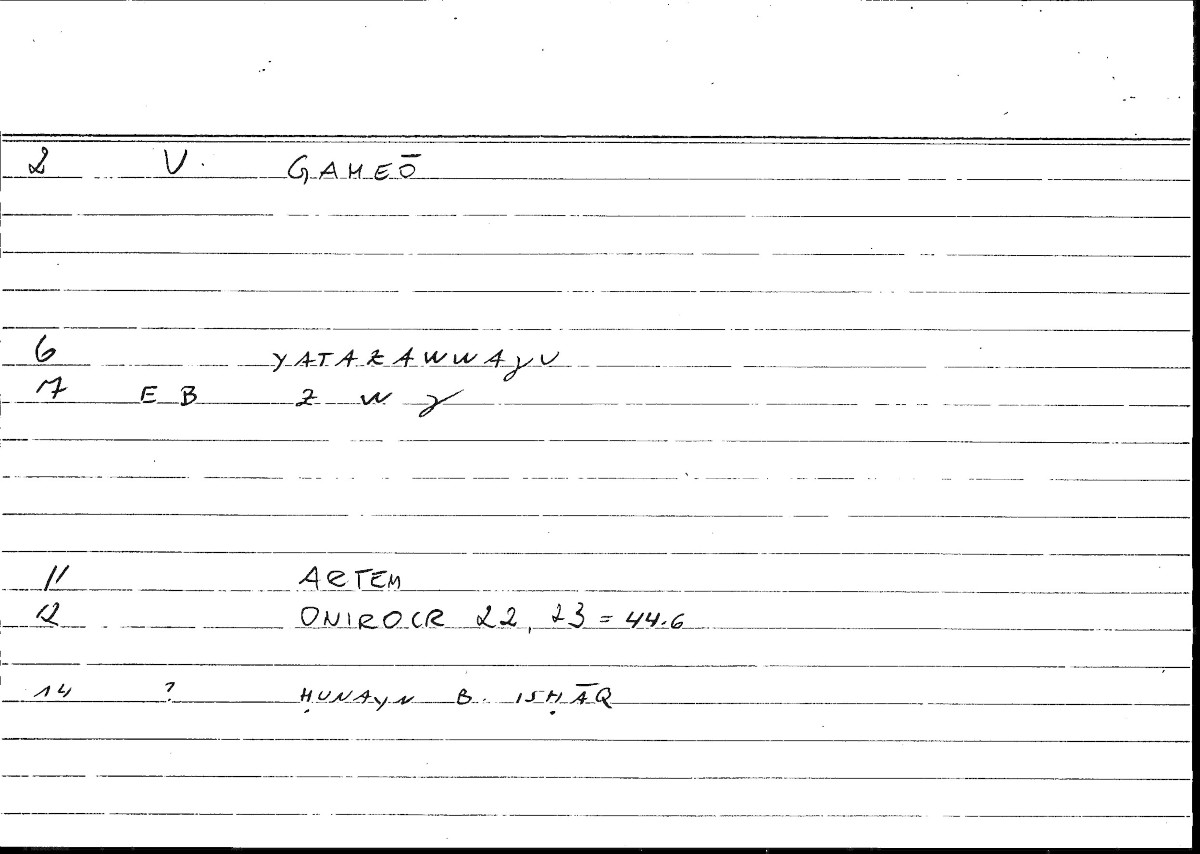 2 V. GAMEŌ
6 YATAZAWWAJU
7 EB Z W J
11 ARTEM
12 ONIROCR 22, 23 = 44.6
14 ? ḤUNAYN B. ISḤĀQ